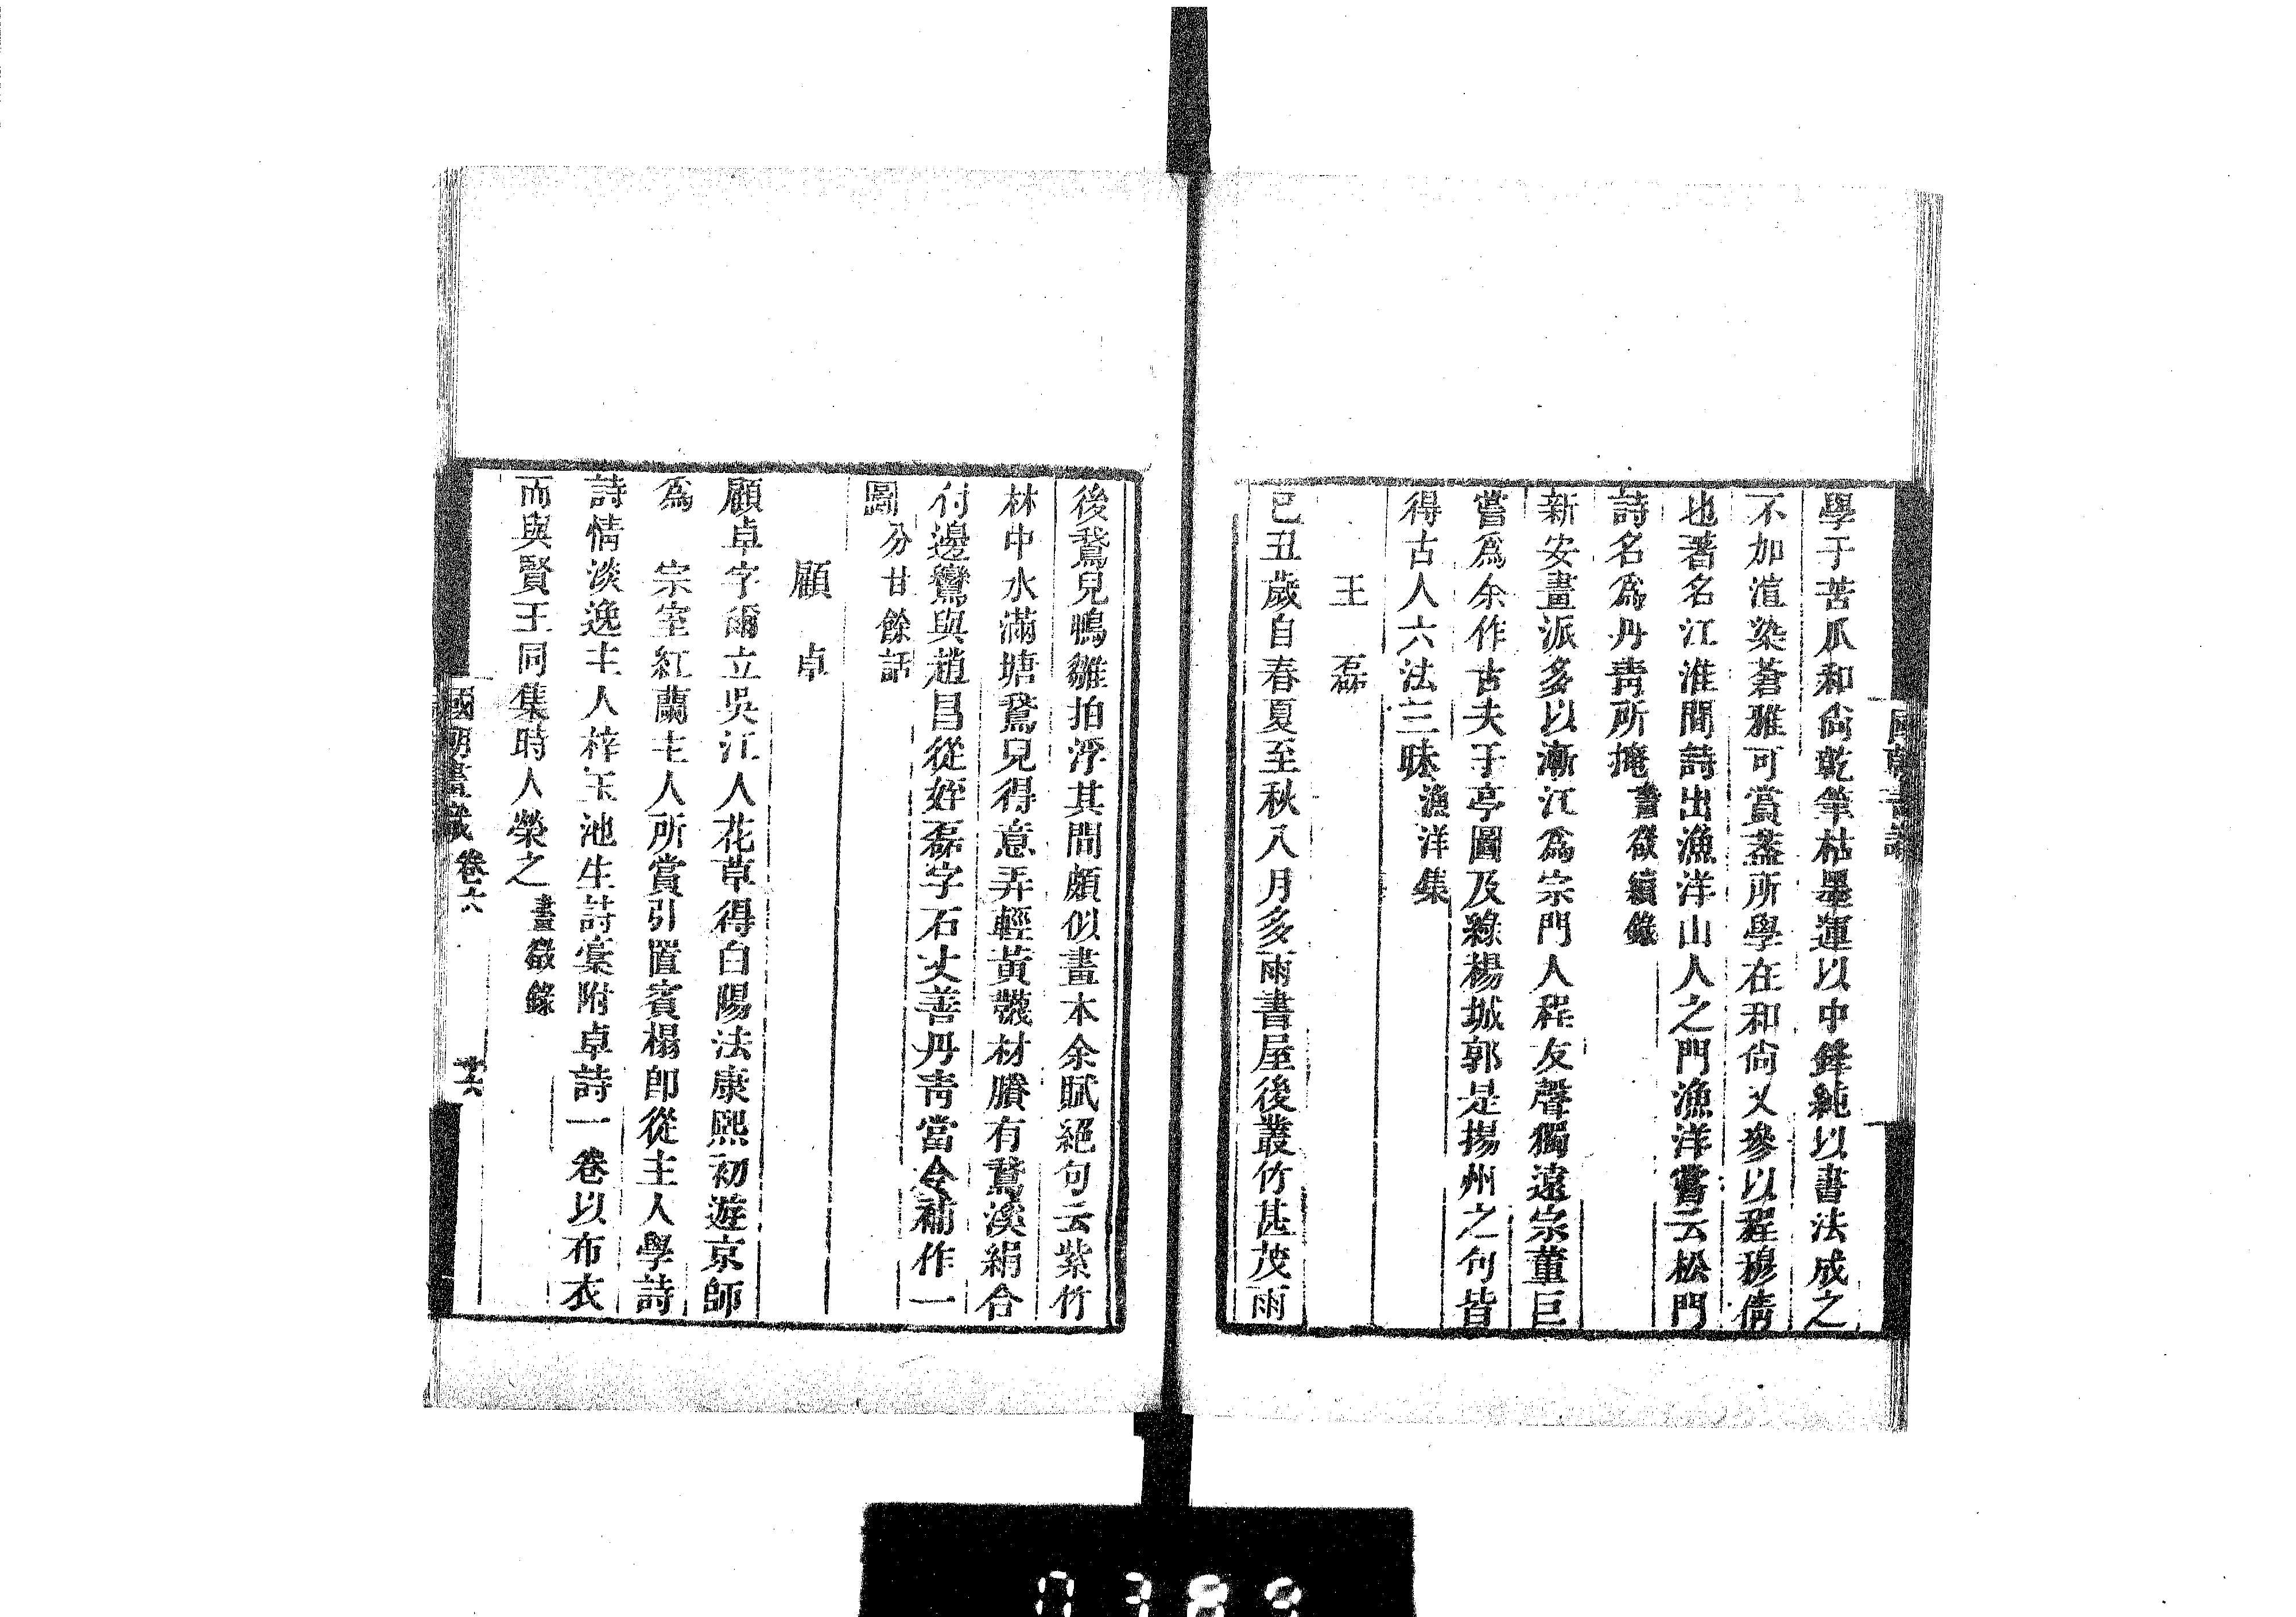 學于苦瓜和尙乾筆枯墨運以中鋒純以書法成之
不加渲染蒼雅可賞葢所學在和尙又參以程穆倩
也著名江淮間詩出漁洋山人之門漁洋嘗云松門
詩名爲丹靑所掩畫徵續錄
新安畫派多以漸江爲宗門人程友聲獨遠宗董巨
嘗爲余作古夫于亭圖及綠楊城郭是揚州之句皆
得古人六法三昧漁洋集
王 磊
已丑歲自春夏至秋八月多雨書屋後叢竹甚茂雨
後鵞兒鴨雛拍浮其間頗似畫本余賦絕句云紫竹
林中水滿塘鵞兒得意弄輕黃韈材賸有鵞溪絹合
付邊鸞與趙昌從姪磊字石丈善丹靑當令補作一
圖分甘餘話
顧 卓
顧卓字爾立吳江人花草得白陽法康熙初遊京師
爲 宗室紅蘭主人所賞引置賓榻卽從主人學詩
詩情淡逸主人梓玉池生詩稾附卓詩一卷以布衣
而與賢王同集時人榮之畫徵錄
國朝畫識 卷六 十六
0389